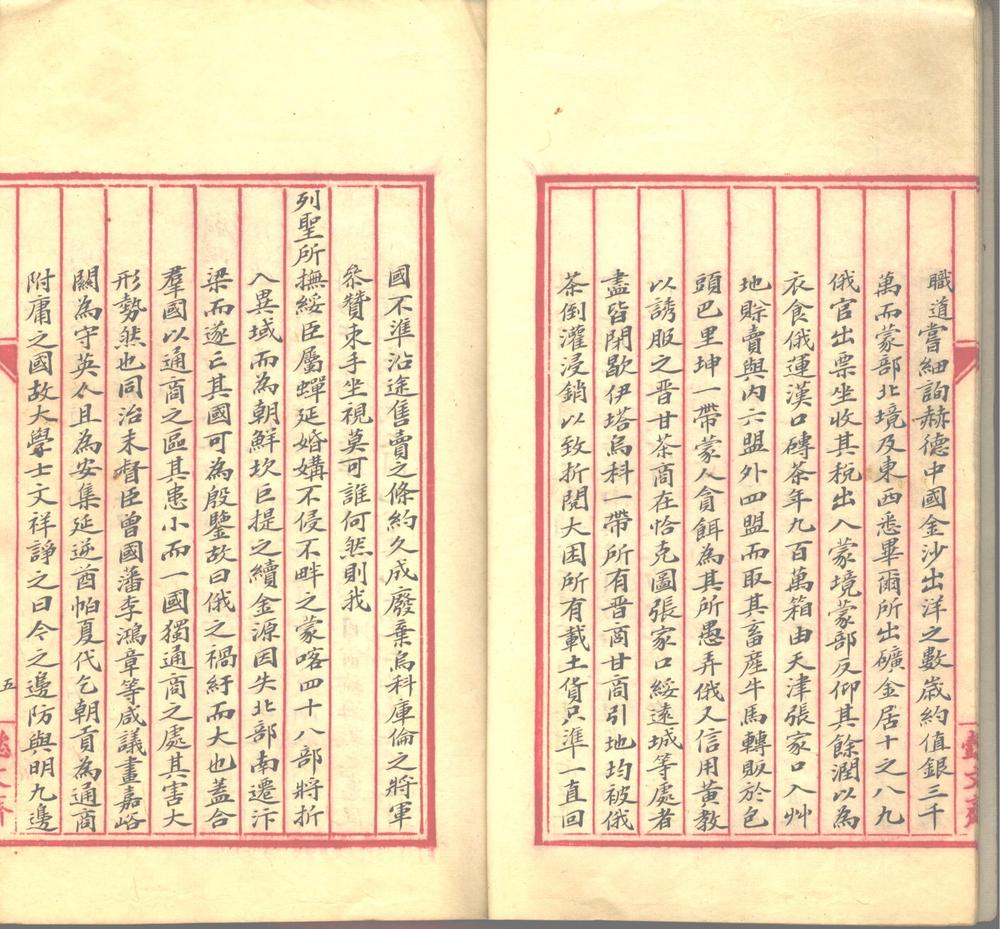 職道嘗細詢赫德中國金沙出洋之數歲約值銀三千
萬而蒙部北境及東西悉畢爾所出礦金居十之八九
俄官出票坐收其稅出入蒙境蒙部反仰其餘潤以為
衣食俄運漢口磚茶年九百萬箱由天津張家口入艸
地賒賣與內六盟外四盟而取其畜產牛馬轉販於包
頭巴里坤一帶蒙人貪餌為其所愚弄俄又信用黃教
以誘服之晉甘茶商在恰克圖張家口綏遠城等處者
盡皆閉歇伊塔烏科一帶所有晉商甘商引地均被俄
茶倒灌浸銷以致折閱大困所有載土貨只準一直回
國不準沿途售賣之條約久成廢棄烏科庫倫之將軍
叅贊束手坐視莫可誰何然則我
列聖所撫綏臣屬蟬延婚媾不侵不畔之蒙喀四十八部將折
入異域而為朝鮮坎巨提之續金源因失北部南遷汴
梁而遂亡其國可為殷鑒故曰俄之禍紆而大也蓋合
羣國以通商之區其患小而一國獨通商之處其害大
形勢然也同治末督臣曾國藩李鴻章等咸議畫嘉峪
關為守英人且為安集延逆酋帕夏代乞朝貢為通商
附庸之國故大學士文祥諍之曰今之邊防與明九邊
五
懿文齋
懿文齋